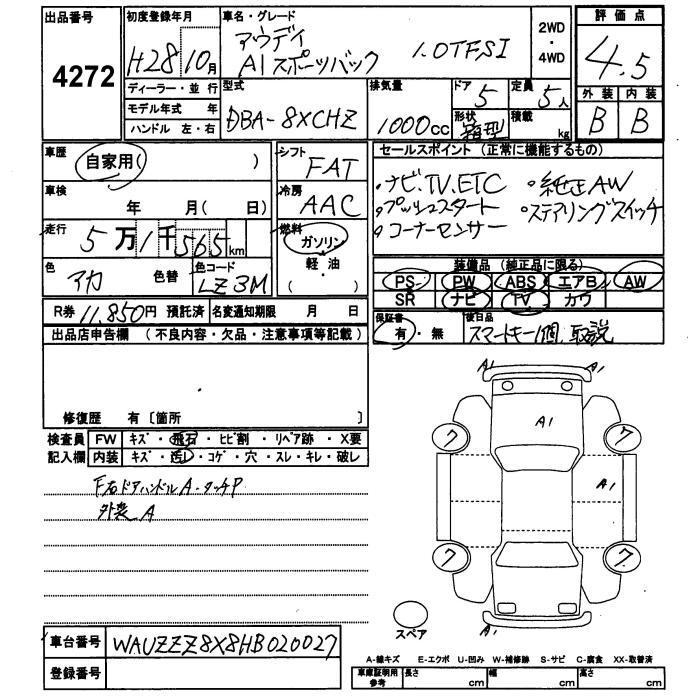 出品番号
4272
初度登録年月
H28 10月
車名・グレード
アウディ
A1スポーツバック 1.0TFSI
2WD
・
4WD
評価点
4.5
外装 内装
B B
ディーラー・並行
モデル年式 年
ハンドル 左・右
型式
DBA-8XCHZ
排気量
1000cc
ドア
5
形状
箱型
定員
5人
積載
kg
車歴
自家用( )
車検
年 月( 日)
走行
5万1千565km
色
アカ
色替
色コード
LZ3M
シフト
FAT
冷房
AAC
燃料
ガソリン
軽・油
( )
セールスポイント (正常に機能するもの)
・ナビ.TV.ETC ・純正AW
・プッシュスタート ・ステアリングスイッチ
・コーナーセンサー
装備品 (純正品に限る)
PS PW ABS エアB AW
SR ナビ TV カワ
R券 11,850円 預託済
名変通知期限 月 日
保証書
有・無
後日品
スマートキー1個、取説
出品店申告欄 (不良内容・欠品・注意事項等記載)
修復歴 有〔箇所 〕
検査員
記入欄
FW キズ・飛石・ヒビ割・リペア跡・X要
内装 キズ・汚レ・コゲ・穴・スレ・キレ・破レ
F右ドアハンドルA-タッチP
外装A
A1 A1
A1
ワ ワ
A1
ワ ワ
A1
スペア
車台番号
WAUZZZ8X8HB020027
登録番号
A-線キズ E-エクボ U-凹み W-補修跡 S-サビ C-腐食 XX-取替済
車庫証明用
参考
長さ cm
幅 cm
高さ cm